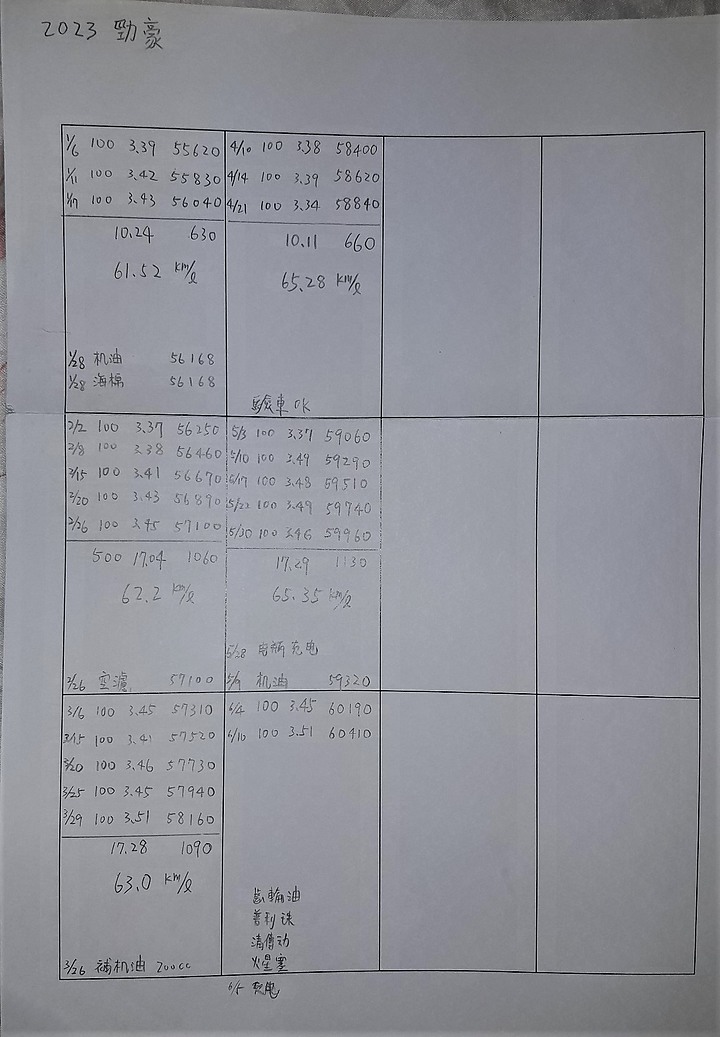 2023 勁豪
1/6 100 3.39 55620
1/11 100 3.42 55830
1/17 100 3.43 56040
10.24 630
61.52 km/ℓ
1/28 机油 56168
1/28 海棉 56168
2/2 100 3.37 56250
2/8 100 3.38 56460
2/15 100 3.41 56670
2/20 100 3.43 56890
2/26 100 3.45 57100
500 17.04 1060
62.2 km/ℓ
2/26 空濾 57100
3/6 100 3.45 57310
3/15 100 3.41 57520
3/20 100 3.46 57730
3/25 100 3.45 57940
3/29 100 3.51 58160
17.28 1090
63.0 km/ℓ
3/26 補机油 200cc
4/10 100 3.38 58400
4/14 100 3.39 58620
4/21 100 3.34 58840
10.11 660
65.28 km/ℓ
驗車 OK
5/3 100 3.37 59060
5/10 100 3.49 59290
5/17 100 3.48 59510
5/22 100 3.49 59740
5/30 100 3.46 59960
17.29 1130
65.35 km/ℓ
5/28 电瓶充电
5/9 机油 59320
6/4 100 3.45 60190
6/10 100 3.51 60410
齒輪油
普利珠
清傳动
火星塞
6/5 充电